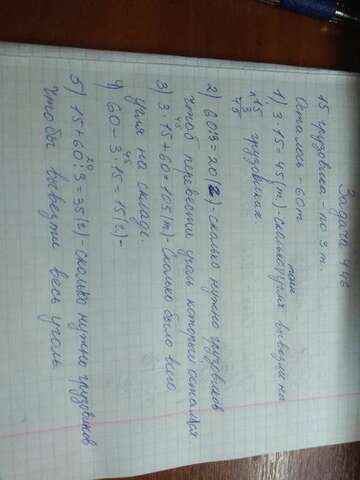 Задача 446
15 грузовика - по 3 т.
Осталось - 60т
1) 3·15=45(т.)-сколько тонн угля вывезли на
15 грузовиках.
×3
45
2) 60:3=20(г)-сколько нужно грузовиков
чтоб перевести уголь который остался
45
3) 3·15+60=105(т)-сколько было всего
угля на складе
45
4) 60-3·15=15(г)-
20
5) 15+60:3=35(г)-сколько нужно грузовиков
чтобы вывезти весь уголь